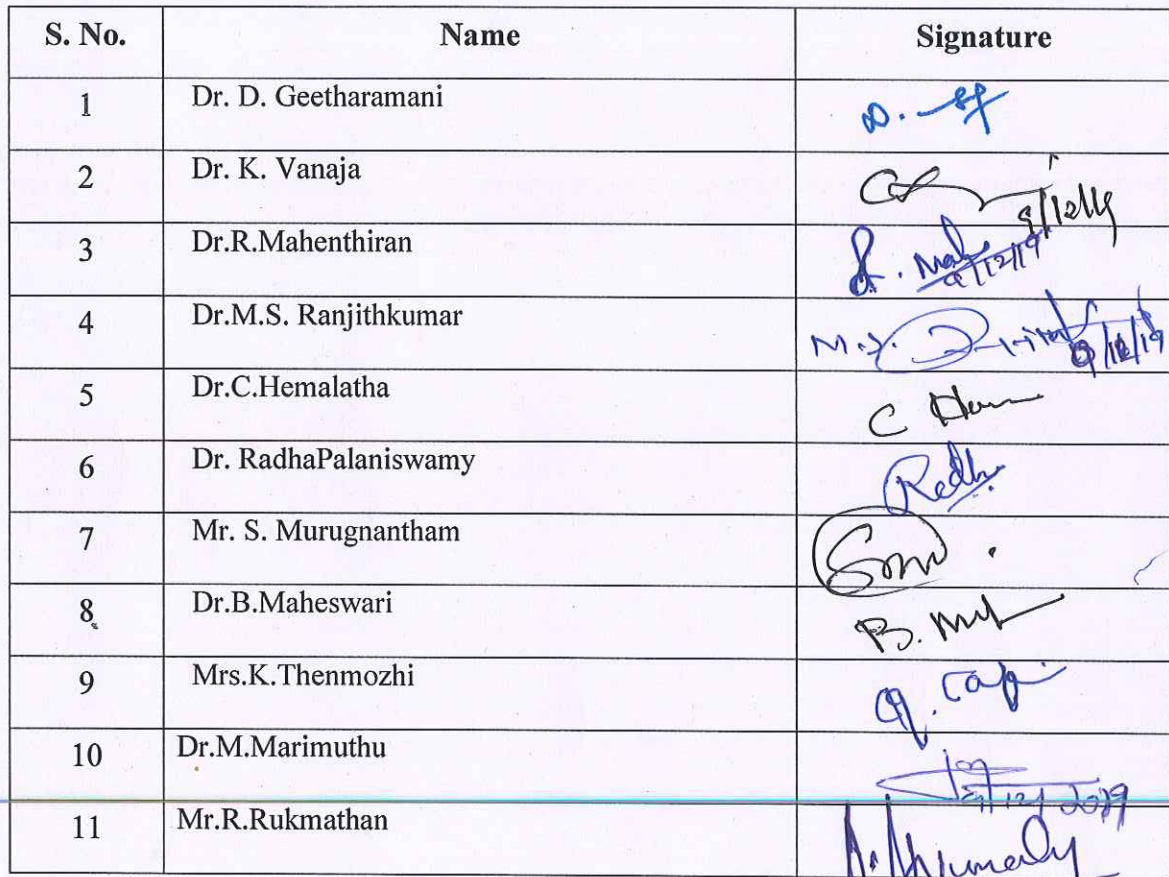 S. No. Name Signature
1 Dr. D. Geetharamani D.
2 Dr. K. Vanaja 9/12/19
3 Dr.R.Mahenthiran R. Mah 9/12/19
4 Dr.M.S. Ranjithkumar M.S. 9/12/19
5 Dr.C.Hemalatha C Hem
6 Dr. RadhaPalaniswamy Radha
7 Mr. S. Murugnantham
8 Dr.B.Maheswari B.
9 Mrs.K.Thenmozhi
10 Dr.M.Marimuthu 9/12/2019
11 Mr.R.Rukmathan